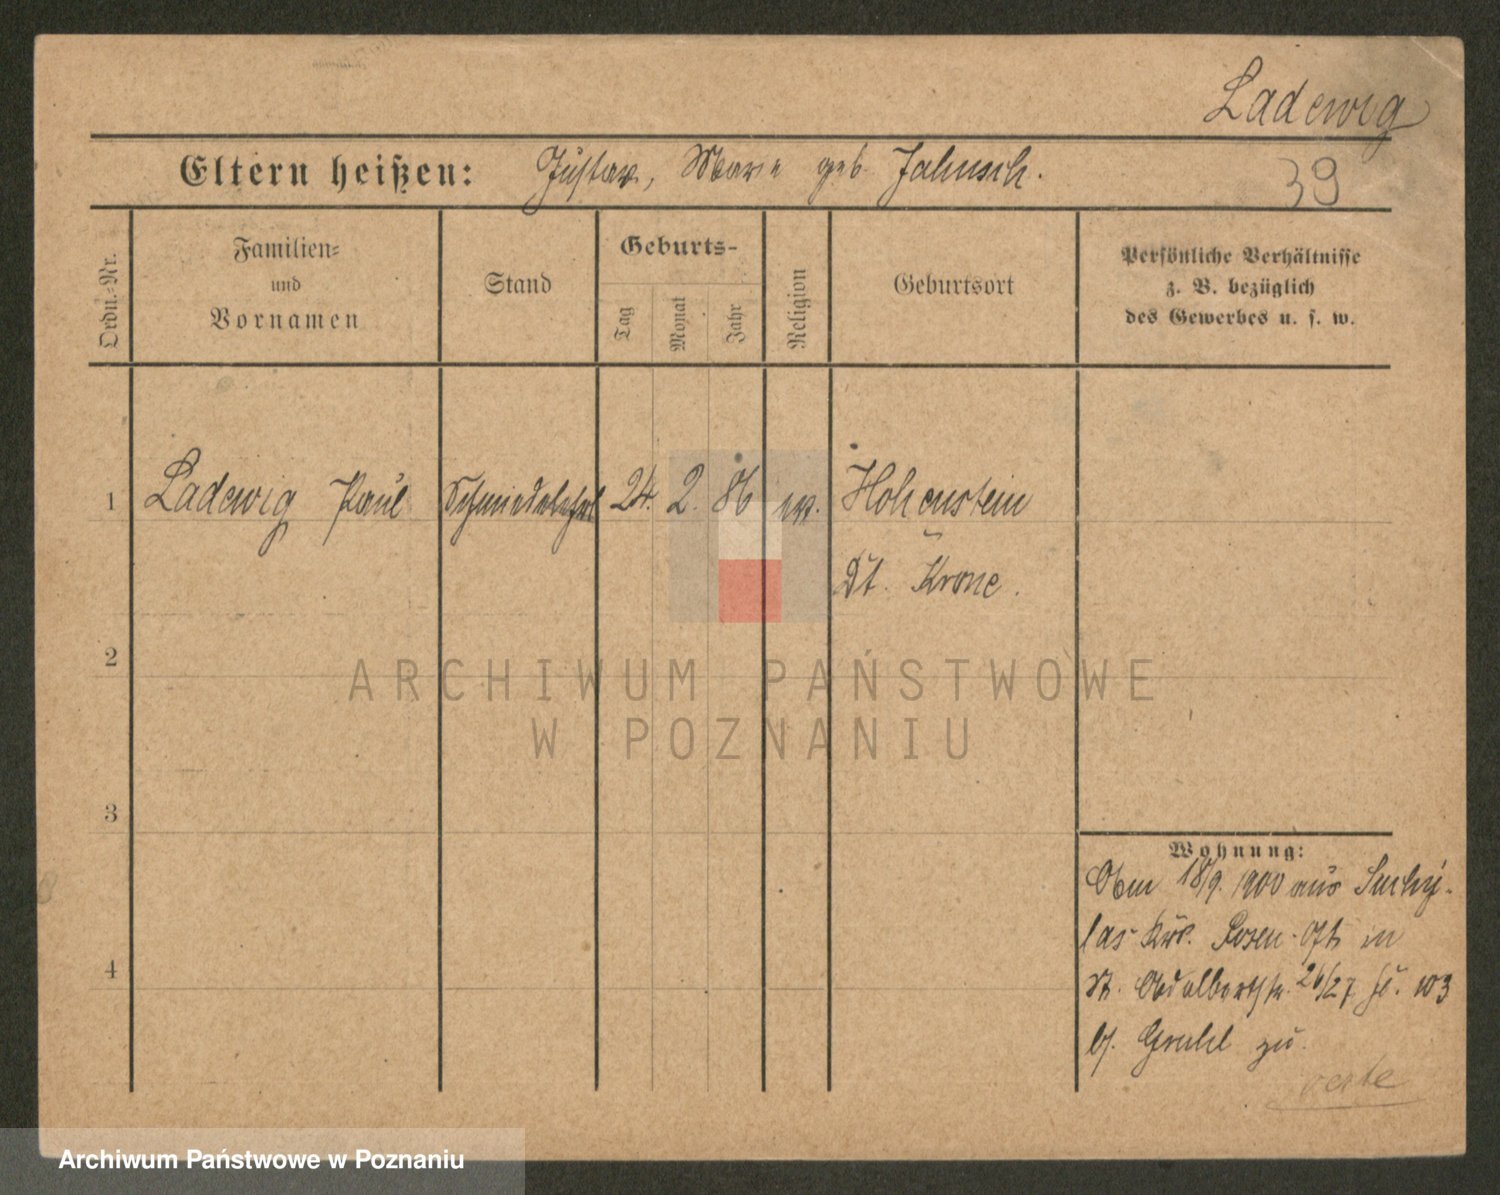 Ladewig
Eltern heißen: Gustav, Marie geb. Jahnsch.
39
Ordn.-Nr.
Familien-
und
Vornamen
Stand
Geburts-
Tag
Monat
Jahr
Religion
Geburtsort
Persönliche Verhältnisse
z. B. bezüglich
des Gewerbes u. s. w.
1 Ladewig Paul Schmiedelehrl 24. 2. 86 ev. Hohenstein
Dt. Krone.
2
3
4
ARCHIWUM PAŃSTWOWE
W POZNANIU
Wohnung:
18/9. 1900 aus Suchy-
las Krs. Posen-Ost in
St. Adalbertstr. 26/27 W3
b/. zu
verte
Archiwum Państwowe w Poznaniu